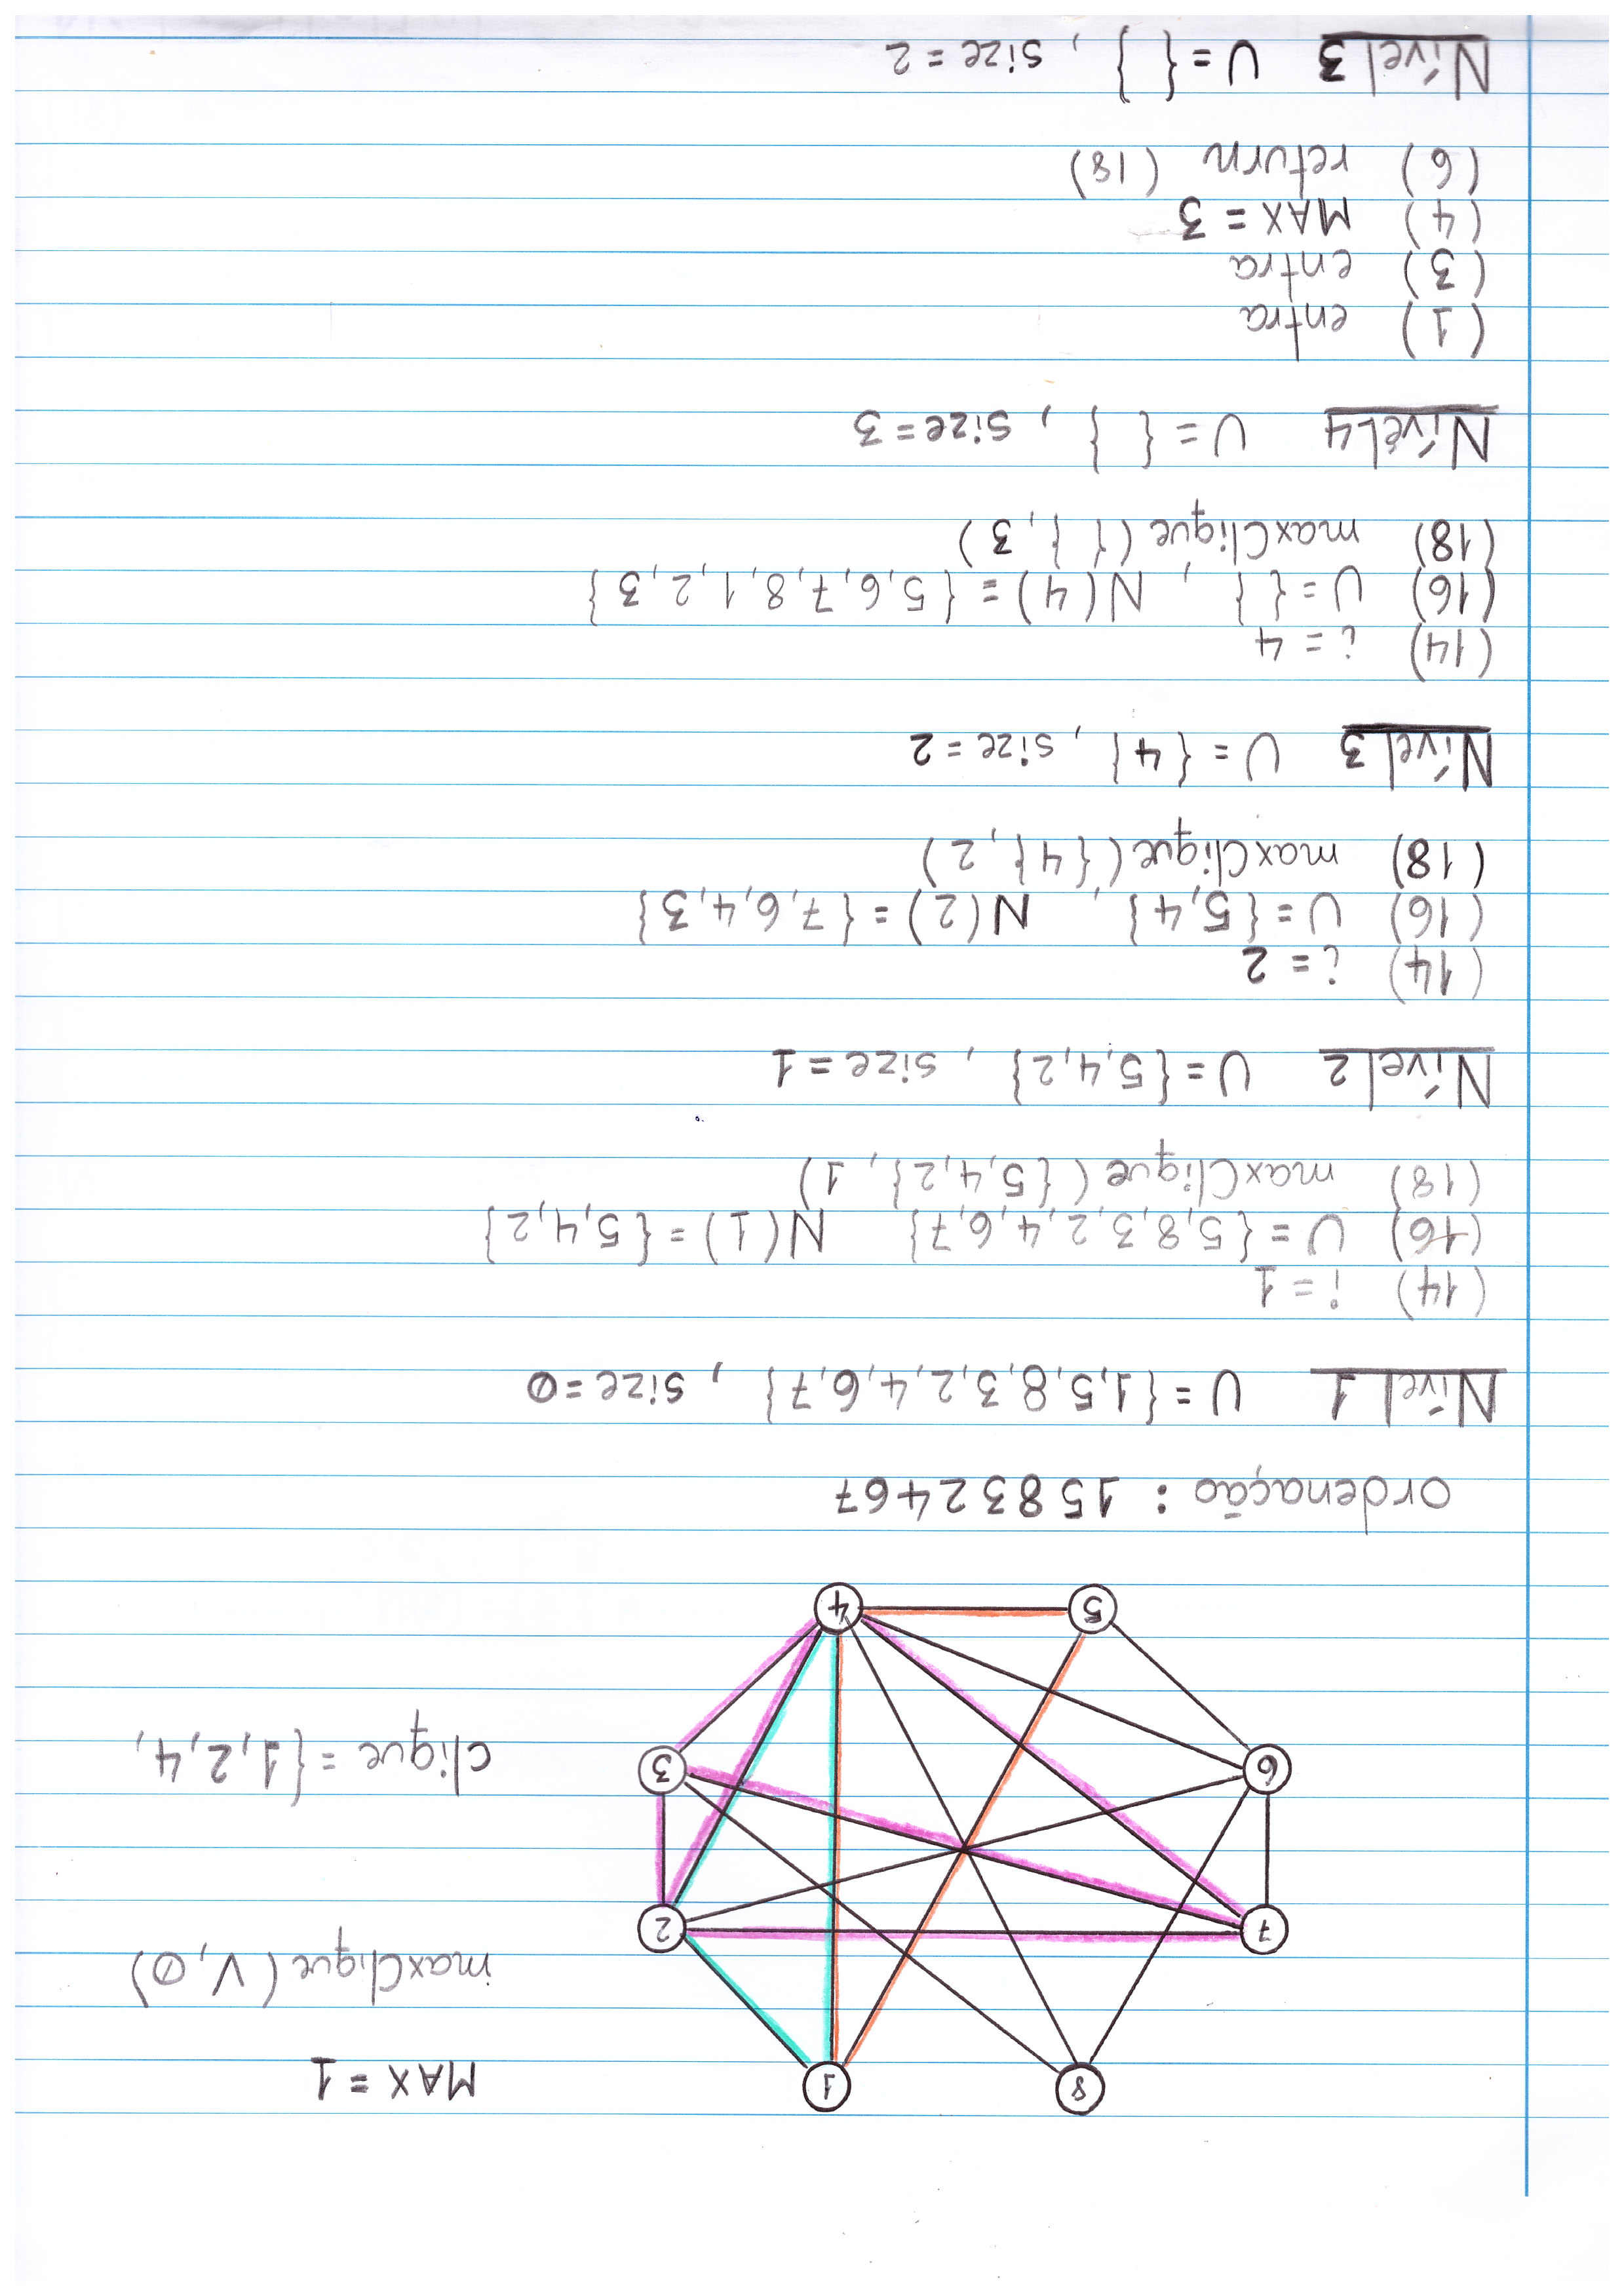 8 1
MAX = 1
maxClique ( V, 0 )
7 2
6 3
clique = { 1, 2, 4,
5 4
ordenação : 1 5 8 3 2 4 6 7
Nível 1 U = { 1, 5, 8, 3, 2, 4, 6, 7 } , size = 0
(14) i = 1
(16) U = { 5, 8, 3, 2, 4, 6, 7 } N(1) = { 5, 4, 2 }
(18) maxClique ( { 5, 4, 2 } , 1 )
Nível 2 U = { 5, 4, 2 } , size = 1
(14) i = 2
(16) U = { 5, 4 } , N(2) = { 7, 6, 4, 3 }
(18) maxClique ( { 4 } , 2 )
Nível 3 U = { 4 } , size = 2
(14) i = 4
(16) U = { } , N(4) = { 5, 6, 7, 8, 1, 2, 3 }
(18) maxClique ( { } , 3 )
Nível 4 U = { } , size = 3
(1) entra
(3) entra
(4) MAX = 3
(6) return (18)
Nível 3 U = { } , size = 2